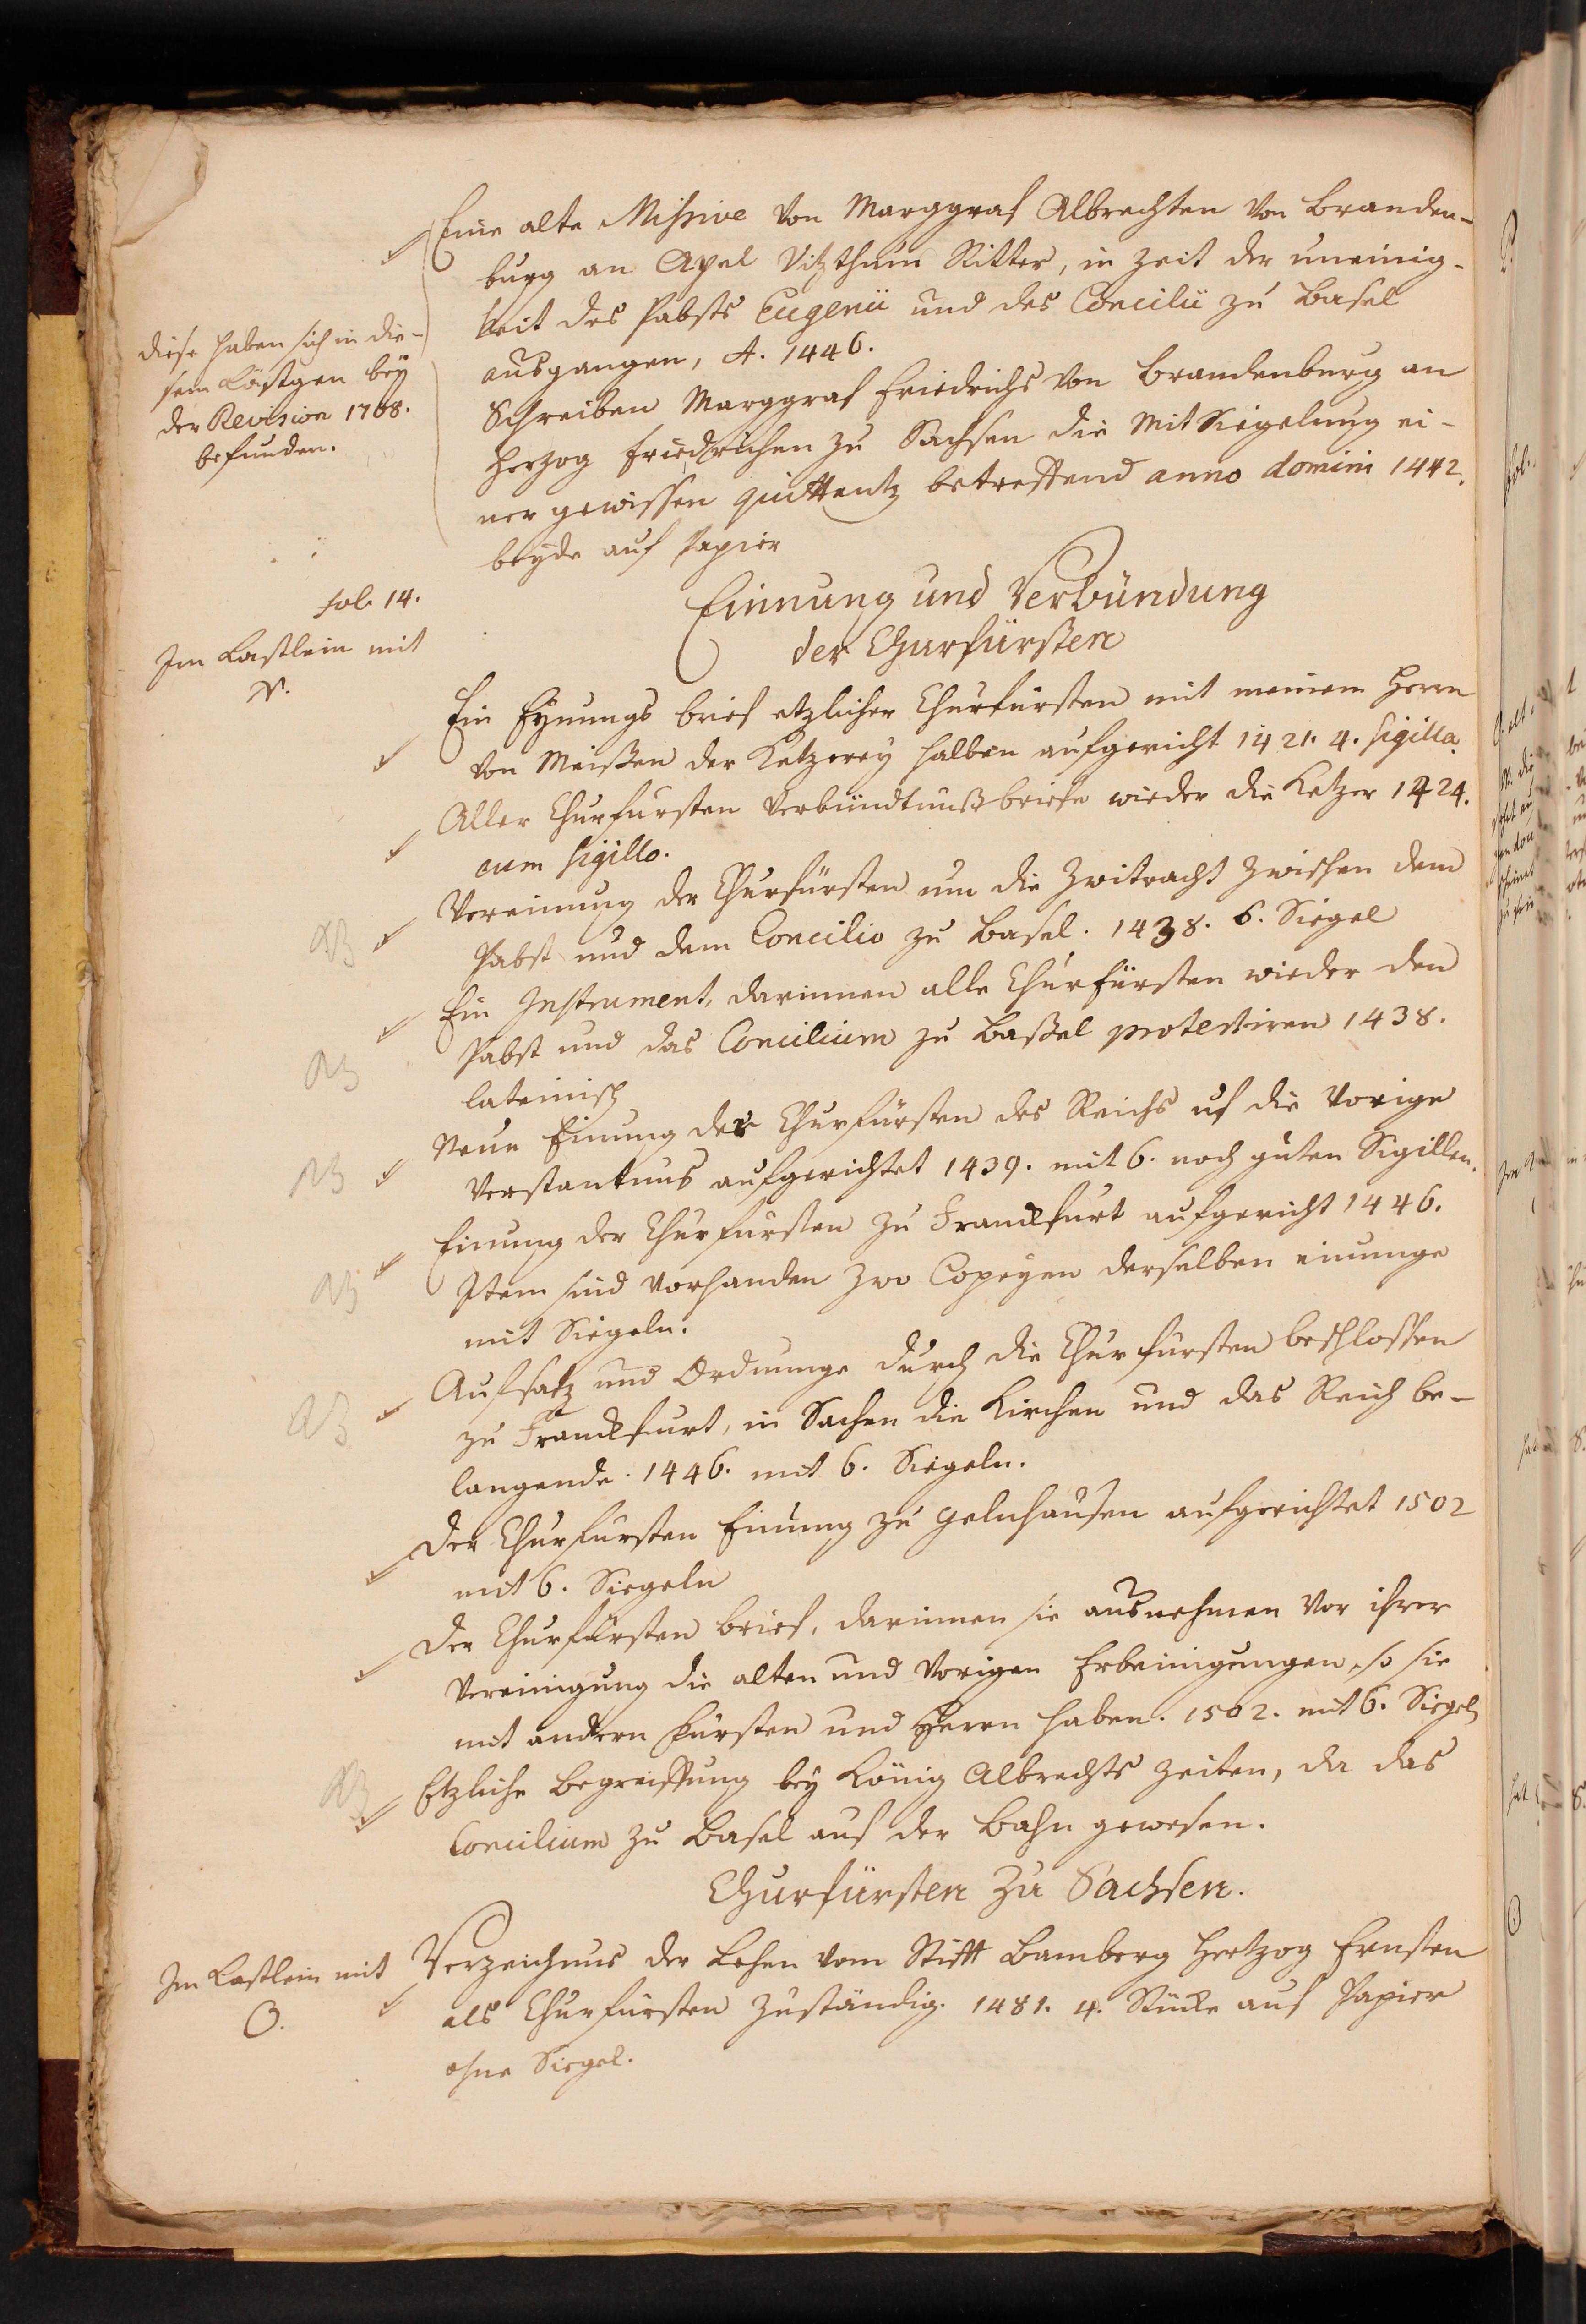 Eine alte Missive von Marggraf Albrechten von Branden-
burg an Apel Vitzthum Ritter, in Zeit der uneinig-
keit des Pabsts Eugenii und des Concilii zu Basel
ausgangen, A. 1446.
diese haben sich in die-
sem Kästgen bey
der Revision 1768.
befunden.
Schreiben Marggraf Friedrichs von Brandenburg an
Herzog Friedrichen zu Sachsen die Mit Siegelung ei-
ner gewissen quittantz betreffend anno domini 1442.
beyde auf Papier
fol. 14.
Einnung und Verbündung
der Churfürsten
Im Kastlein mit
N.
Ein Eynungs brief etzlicher Churfürsten mit meinem Herrn
von Meißen der Ketzerey halben aufgericht 1421. 4. sigilla.
Aller Churfürsten Verbündtnuß briefe wieder die Ketzer 1424.
cum sigillo.
NB Vereinung der Churfürsten um die Zwitracht zwischen dem
Pabst und dem Concilio zu Basel. 1438. 6. Siegel
NB Ein Instrument, darinnen alle Churfürsten wieder den
Pabst und das Concilium zu Baßel protestiren 1438.
lateinisch
NB Neue Einung der Churfürsten des Reichs uf die vorige
Verstantnus aufgerichtet 1439. mit 6. noch guten Sigillen.
NB Einung der Churfürsten zu Franckfurt aufgericht 1446.
Item sind vorhanden zwo Copeyen derselben einunge
mit Siegeln.
NB Aufsatz und Ordnunge durch die Churfürsten beschlossen
zu Franckfurt, in Sachen die Kirchen und das Reich be-
langende. 1446. mit 6. Siegeln.
Der Churfürsten Einung zu Gelnhausen aufgerichtet 1502
mit 6. Siegeln
Der Churfürsten brief, darinnen sie ausnehmen vor ihrer
Vereinigung die alten und vorigen Erbeinigungen, so sie
mit andern Fürsten und Herrn haben. 1502. mit 6. Siegel
NB Etzliche Begreiffung bey König Albrechts Zeiten, da das
Concilium zu Basel auf der Bahn gewesen.
Churfürsten zu Sachsen.
Im Kastlein mit
O.
Verzeichnus der Lehen vom Stifft Bamberg Hertzog Ernsten
als Churfürsten zuständig. 1481. 4. Stücke auf Papier
ohne Siegel.